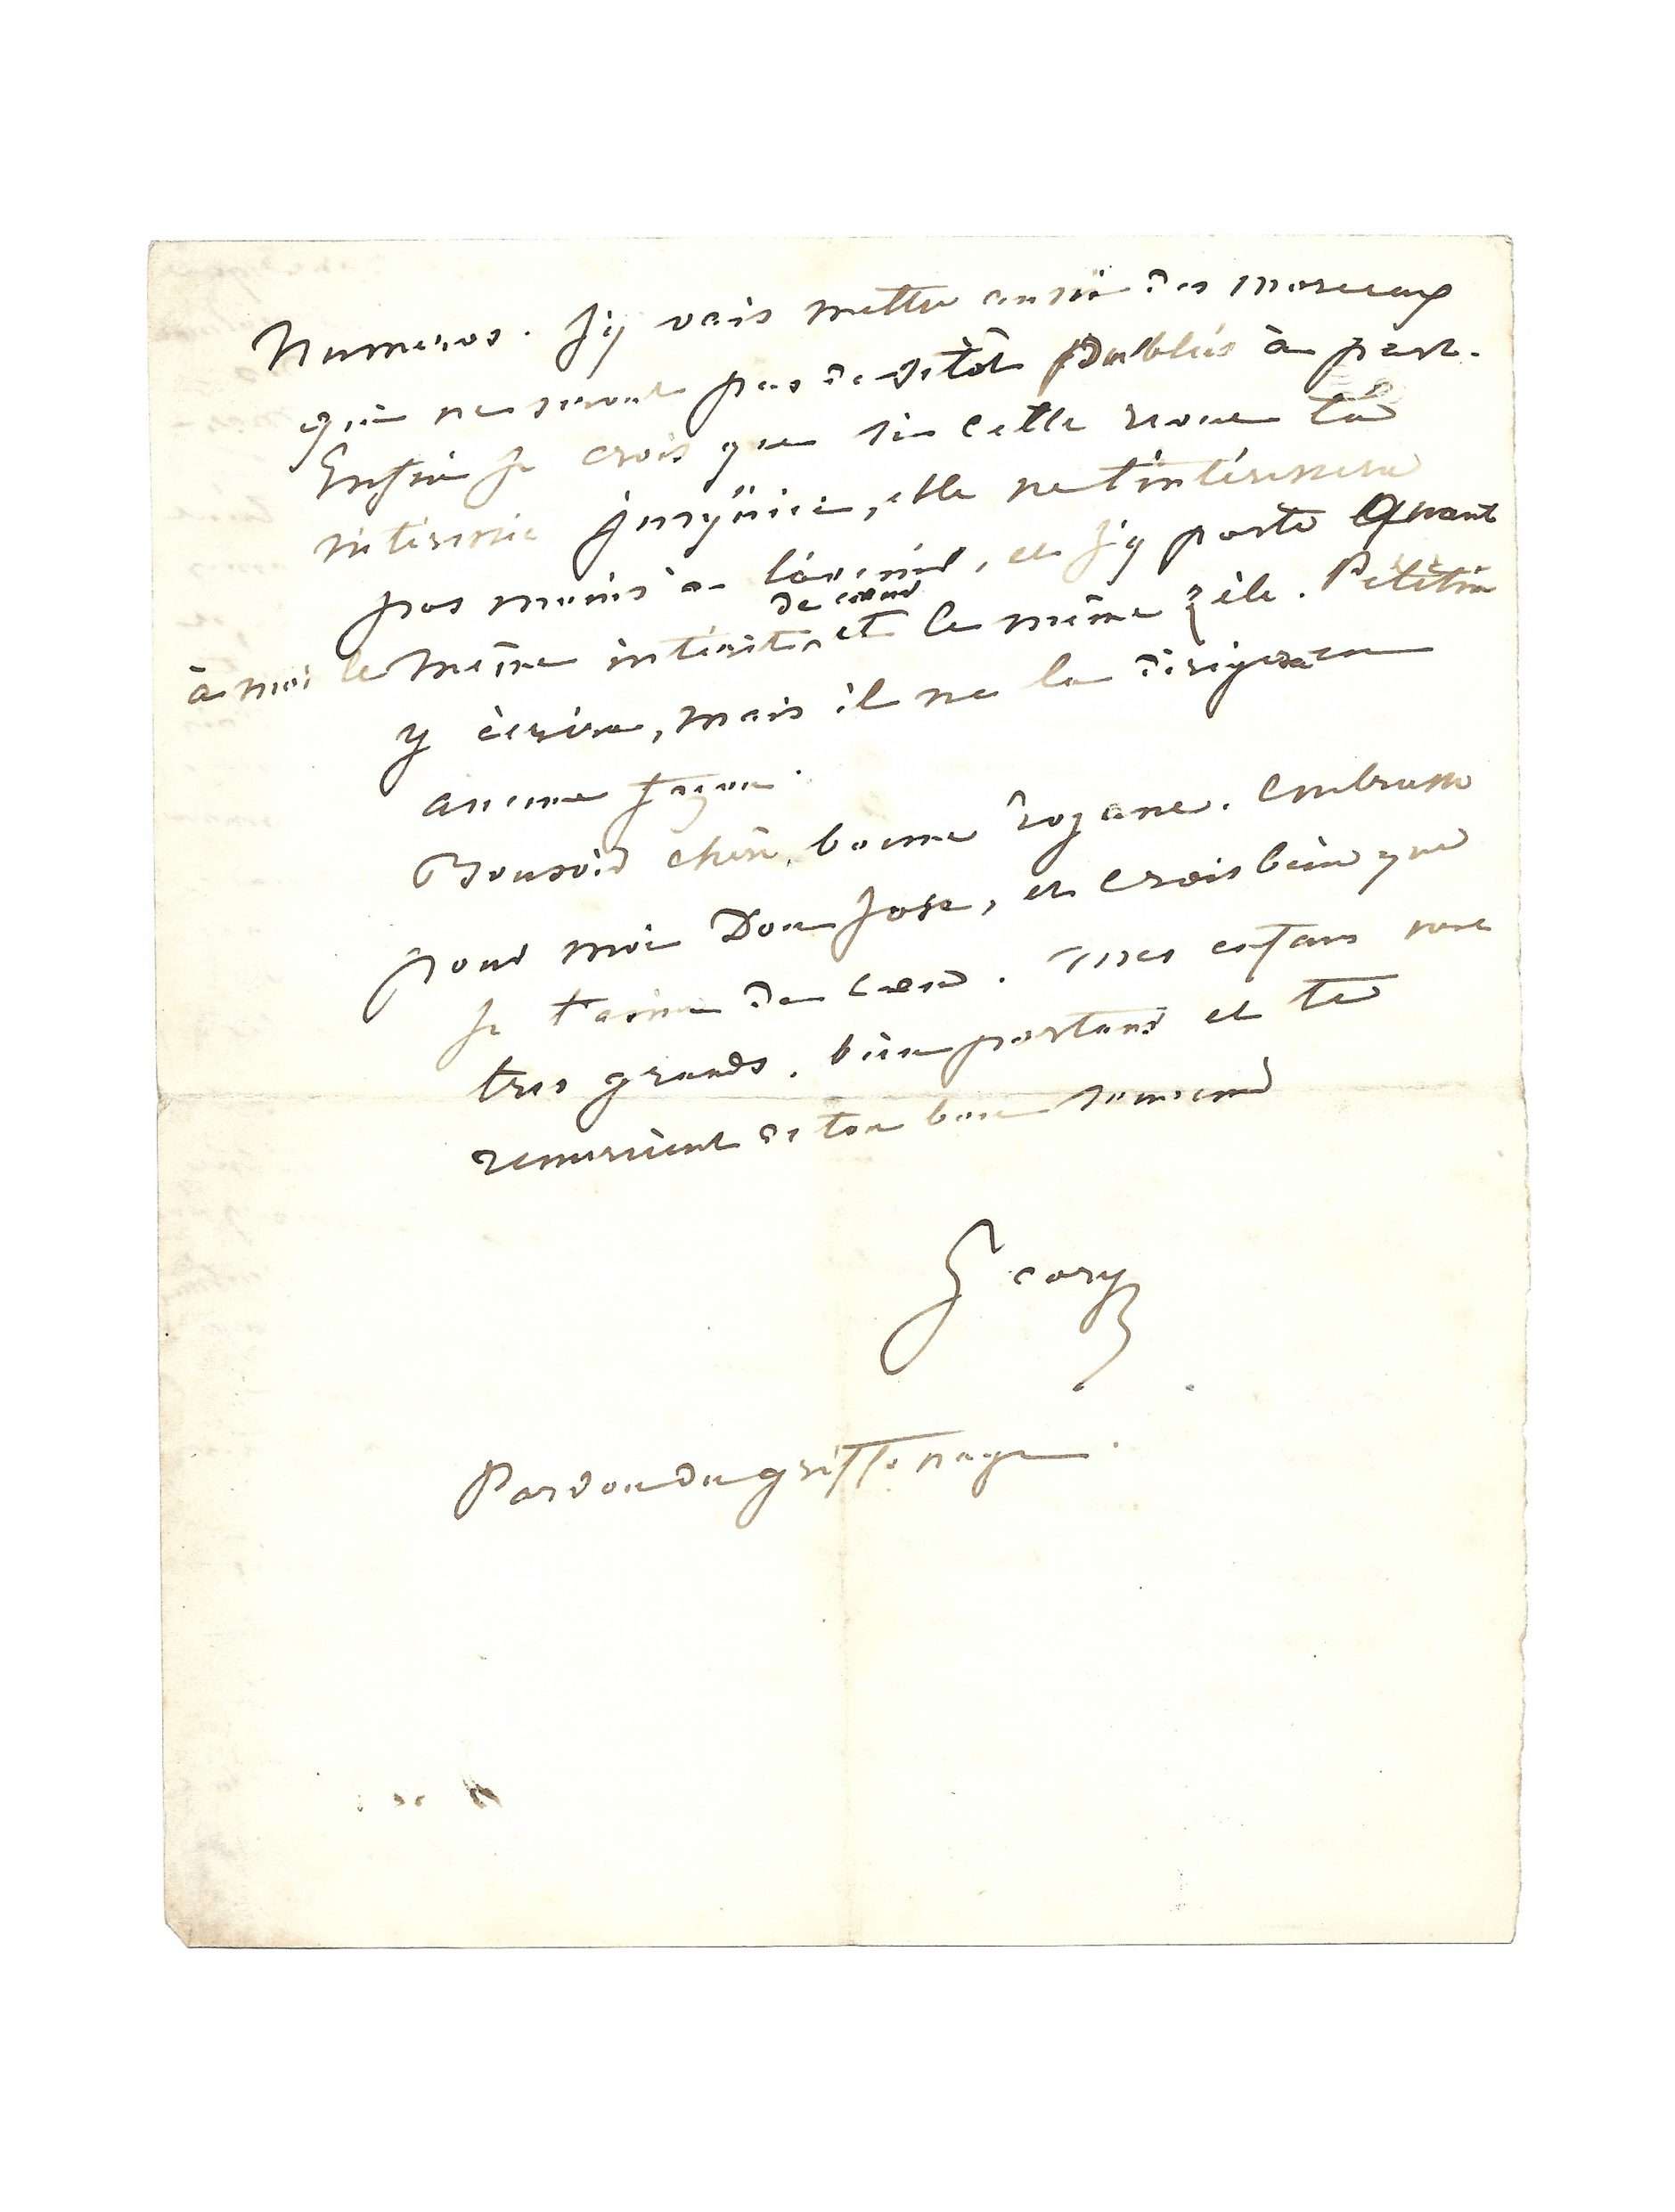 Numeros. J'y vais mettre aussi des morceaux
qui ne seront pas de sitôt publiés à part.
Enfin je crois que si cette revue t'a
interessée jusqu'ici, elle ne t'intéressera
pas moins à l'avenir, et j'y porte quant
à moi le même intérêt de cœur et le même zèle. Petétin
y écrira, mais il ne la dirigera en
aucune façon.
Bonsoir chère, bonne Rozane. Embrasse
pour moi Don Jose, et crois bien que
je t'aime de cœur. Mes enfans sont
tres grands, bien portans et te
remercient de ton bon souvenir
George
Pardon du griffonnage.